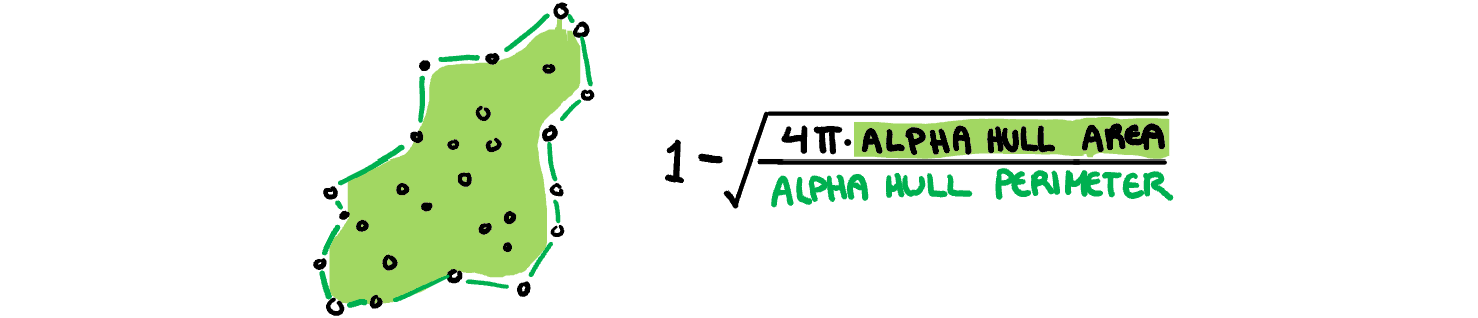 1 - √
4π · ALPHA HULL AREA
ALPHA HULL PERIMETER